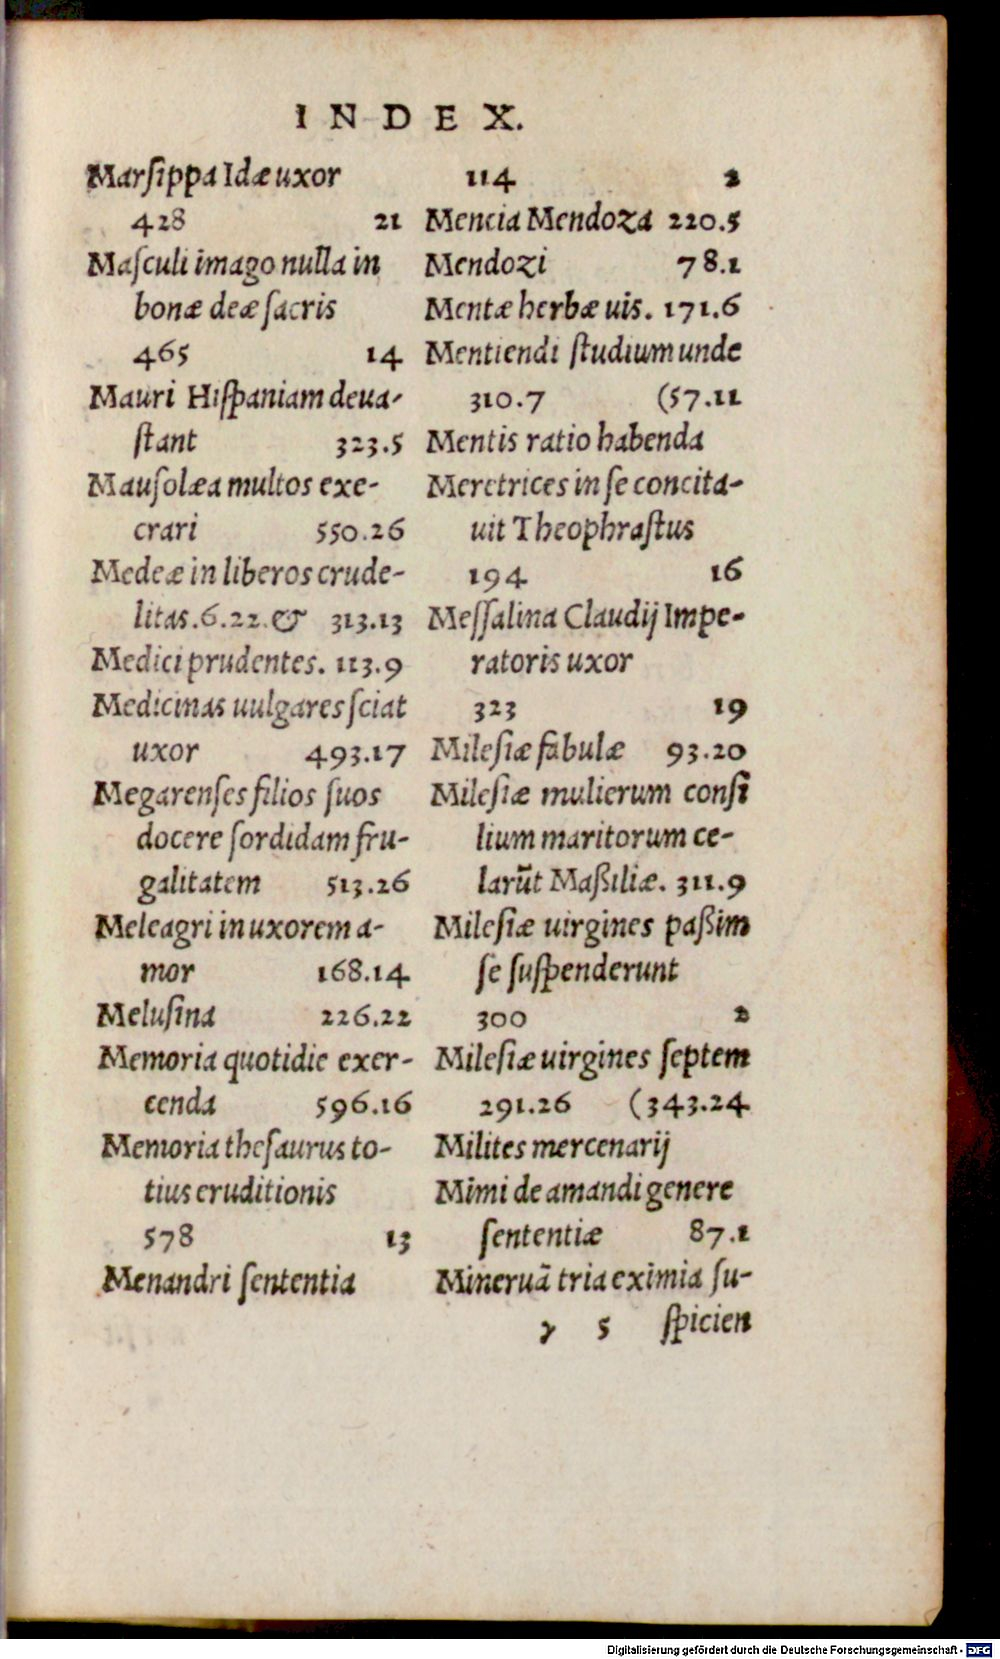 INDEX.
Marſippa Idæ uxor
428 21
Maſculi imago nulla in
bonæ deæ ſacris
465 14
Mauri Hiſpaniam deua-
ſtant 323.5
Mauſolæa multos exe-
crari 550.26
Medeæ in liberos crude-
litas. 6.22. & 313.13
Medici prudentes. 113.9
Medicinas uulgares ſciat
uxor 493.17
Megarenſes filios ſuos
docere ſordidam fru-
galitatem 513.26
Meleagri in uxorem a-
mor 168.14
Meluſina 226.22
Memoria quotidie exer-
cenda 596.16
Memoria theſaurus to-
tius eruditionis
578 13
Menandri ſententia
114 2
Mencia Mendoza 220.5
Mendozi 78.1
Mentæ herbæ uis. 171.6
Mentiendi ſtudium unde
310.7 (57.11
Mentis ratio habenda
Meretrices in ſe concita-
uit Theophraſtus
194 16
Meſſalina Claudij Impe-
ratoris uxor
323 19
Mileſiæ fabulæ 93.20
Mileſiæ mulierum conſi
lium maritorum ce-
larūt Maßiliæ. 311.9
Mileſiæ uirgines paßim
ſe ſuſpenderunt
300 2
Mileſiæ uirgines ſeptem
291.26 (343.24
Milites mercenarij
Mimi de amandi genere
ſententiæ 87.1
Mineruā tria eximia ſu-
y 5 ſpicien
Digitalisierung gefördert durch die Deutsche Forschungsgemeinschaft - DFG